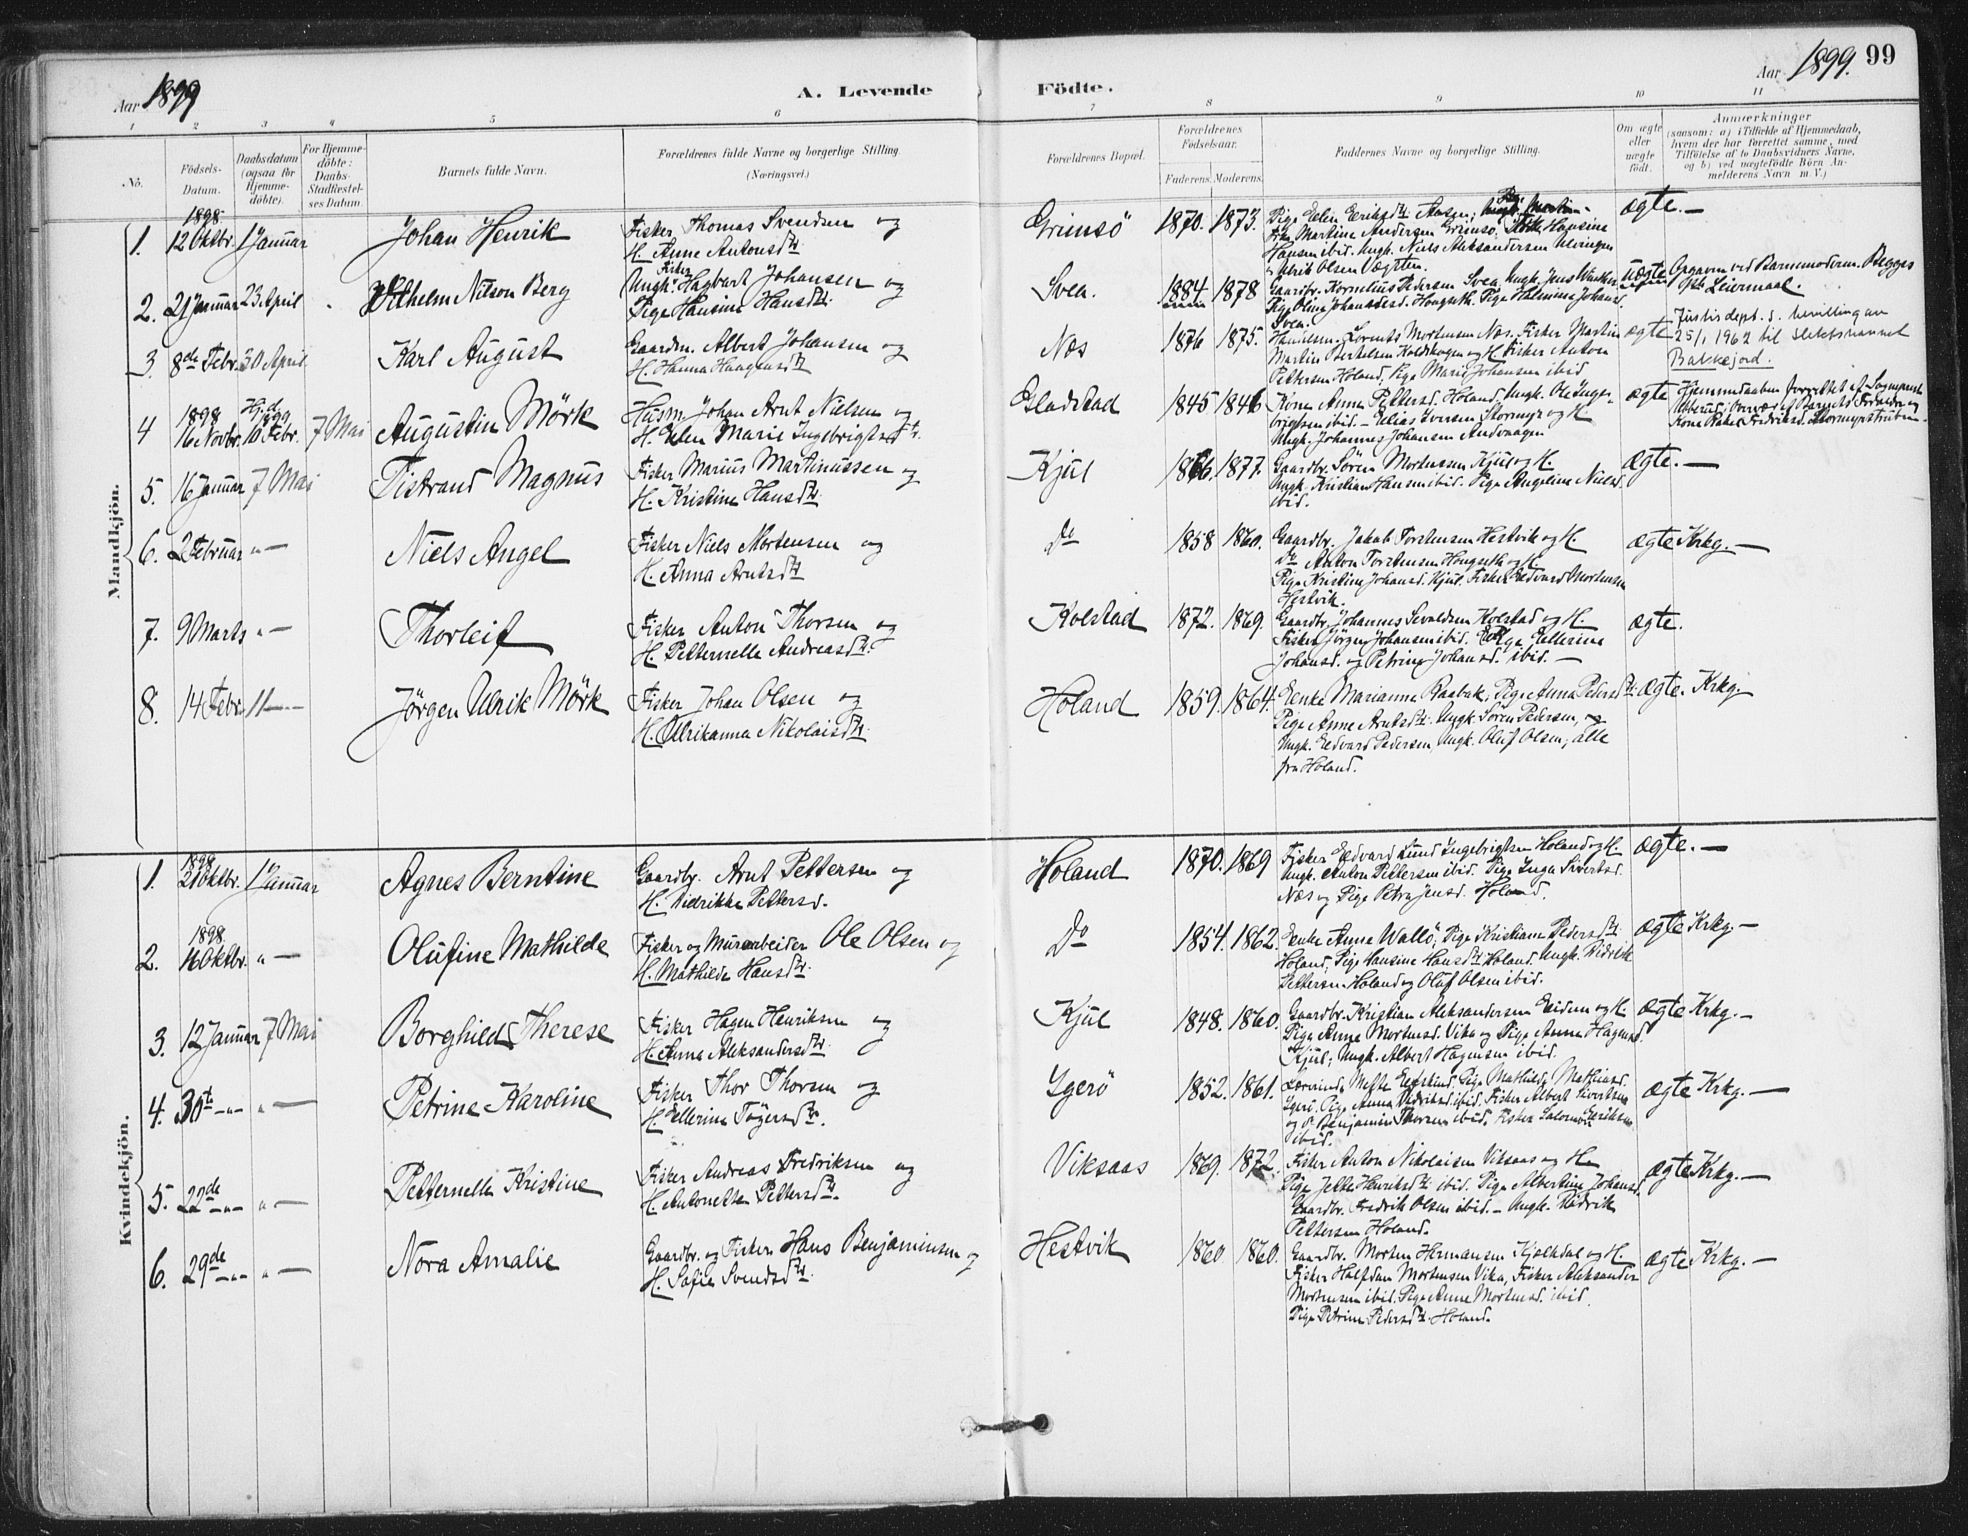 Aar 1899
A. Levende
Födte.
Aar 1899. 99
1 2 3 4 5 6 7 8 9 10 11
No.
Födsels-
Datum.
Daabsdatum
(ogsaa for
Hjemme-
döbte).
For Hjemme-
döbte:
Daabs-
Stadfæstel-
ses Datum.
Barnets fulde Navn.
Forældrenes fulde Navne og borgerlige Stilling.
(Næringsvei.)
Forældrenes Bopæl.
Forældrenes
Födselsaar.
Faderens. Moderens.
Faddernes Navne og borgerlige Stilling.
Om ægte
eller
uægte
födt.
Anmærkninger
(saasom: a) i Tilfælde af Hjemmedaab,
hvem der har forrettet samme, med
Tilföielse af to Daabsvidners Navne,
og b) ved uægtefödte Börn An-
melderens Navn m. V.)
Mandkjön.
1898.
1. 12 Oktbr. 1 Januar Johan Henrik Fisker Thomas Svendsen og
H. Anne Antonsdtr.
Grimsö 1870. 1873. ægte. —
Fisker Martine Andersen Grimsö, Hansine
Hansen ibid. Ungk. Niels Aleksandersen Ulvingen
Ulrik Olsen Vægtten.
2. 21 Januar 23. April Vilhelm Nilson Berg Ungk. Fisker Hagbart Johansen og
Pige Hansine Hansdtr.
Svea. 1884 1878 Gaardbr. Kornelius Pedersen Svea, Ungk. Jens
Pige Oline Johansd. Hougseth. Pige Johansd.
Svea.
uægte Opgaven ved Barnemoderen. Begges
Leiermaal.
3. 8de Febr. 30 April Karl August Gaardm. Albert Johansen og
H. Hanna Haagensdtr.
Næs 1876 1875. Lorents Mortensen Næs. Fisker Martin
Martin Bertelsen Koldhaugen og H. Fisker Anton
Pettersen Höland, Pige Marie Johansen ibid
ægte Justisdept.s bevilling av
25/1 1962 til slektsnavnet
Balskejord.
4 1898 16 Novbr. Hj.d. 1899 10 Febr. 7 Mai Augustin Mörk Husm. Johan Arnt Nielsen og
H. Elen Marie Ingebrigtsdtr.
Gladstad 1845 1846 Kone Anne Pettersd. Höland, Ungk. Ole Inge-
brigtsen ibid. – Elias Iversen Stormyr og H.
Ungk. Johannes Johansen Andvaagen
ægte Hjemmedaaben forrettet af Sogneprest
Overvær af Barnets Forældre og
Kone Fredriksd. Stormyr
5. 16 Januar 7 Mai Tistrand Magnus Fisker Marius Martinussen og
H. Kristine Hansdtr.
Kjul 1866. 1877. Gaardbr. Sören Mortensen Kjul og H.
Ungk. Kristian Hansen ibid. Pige Angeline Nielsd.
ibid.
ægte. —
6. 2 Februar " — Niels Angel Fisker Niels Mortensen og
H. Anna Arntsdtr
Do 1858 1860. Gaardbr. Jakob Torstensen Hestvik og H.
Do Anton Torstensen Hougseth og H.
Pige Kristine Johansd. Kjul. Fisker Edvard Mortensen
Hestvik.
ægte Krkg. —
7. 9 Marts " — Thorleif Fisker Anton Thorsen og
H. Petternelle Andreasdtr.
Kolstad 1872. 1869. Gaardbr. Johannes Sevaldsen Kolstad og H.
Fisker Jörgen Johansen ibid. Pige Ellerine
Johansd. og Petrine Johansd. ibid. —
ægte.
8. 14 Febr. 11 — Jörgen Ulrik Mörk Fisker Johan Olsen og
H. Ulrikanna Nikolaisdtr.
Höland 1859. 1864. Enke Marianne Raabak, Pige Anna Pedersdtr.
Pige Anne Arntsdtr. Ungk. Sören Pedersen, og
Ungk. Edvard Pedersen, Ungk. Oluf Olsen, alle
fra Höland.
ægte. Krkg.
Kvindekjön.
1898
1. 21 Oktbr. 1 Januar Agnes Berntine Gaardbr. Arnt Pettersen og
H. Didrikke Pettersd.
Höland 1870. 1869 Fisker Edvard Lund Ingebrigtsen Höland og H.
Ungk. Anton Pettersen ibid. Pige Inga Sivertsd.
Næs og Pige Petra Jensd. Höland.
ægte. —
1898.
2. 16 Oktbr. " — Olufine Mathilde Fisker og Murarbeider Ole Olsen og
H. Mathilde Hansdtr.
Do 1854. 1862. Enke Anna Wallö, Pige Kristiane Pedersdtr.
Höland, Pige Hansine Hansdtr. Höland. Ungk. Didrik
Pettersen Höland og Oluf Olsen ibid.
ægte Krkg. —
3. 12 Januar 7 Mai Borghild Therese Fisker Hagen Henriksen og
H. Anna Aleksandersdtr.
Kjul 1848. 1860. Gaardbr. Kristian Aleksandersen Eidem og H.
Pige Anne Mortensd. Vika og Pige Anna Hagensd.
Kjul, Ungk. Albert Hagensen ibid.
ægte Krkg. —
4. 30te – " – " — Petrine Karoline Fisker Thor Thorsen og
H. Ellerine Tögersdtr.
Ygerö 1852. 1861. Pige Mathilde Mathiasd.
Ygerö, Pige Anna Didriksd. ibid. Fisker Albert Sivertsen
og Benjamin Thorsen ibid. Fisker Salomon Eriksen
ibid.
ægte Krkg. —
5. 22de – " – " — Petternelle Kristine Fisker Andreas Fredriksen og
H. Antonette Pettersdtr.
Viksaas 1869. 1872. Fisker Anton Nikolaisen Viksaas og H.
Pige Jette Henriksdtr. ibid. Pige Albertine Johansd.
Gaardbr. Fredrik Olsen ibid. – Ungk. Didrik
Pettersen Höland.
ægte Krkg. —
6. 29de – " – " — Nora Amalie Gaardbr. og Fisker Hans Benjaminsen og
H. Sofie Svendsdtr.
Hestvik 1860 1860. Gaardbr. Morten Hermansen Kjolkdal og H.
Fisker Halfdan Mortensen Vika, Fisker Aleksander
Mortensen ibid. Pige Anne Mortensd. ibid.
Pige Petrine Pedersdtr. Höland.
ægte Krkg. —